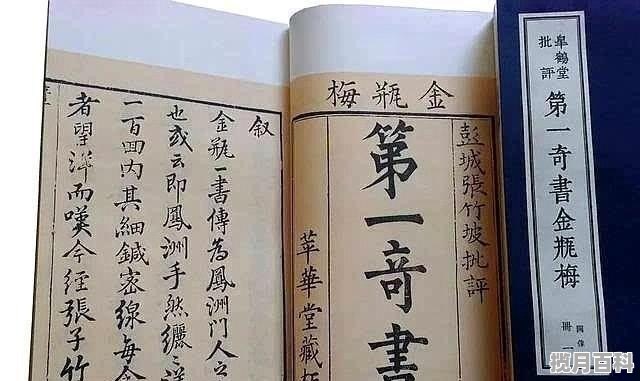 皐鶴堂
批評
第一奇書金瓶梅
圖像
冊一
金瓶梅
彭城張竹坡批評
第一奇書
苹華堂藏
叙
金瓶一書傳為鳳洲門人之
也或云即鳳洲手然纚〻
一百回内其細鍼密線每令
者望洋而嘆今經張子竹
揽月百科